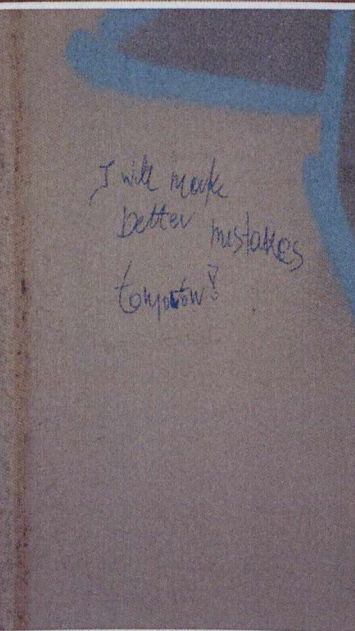 I will make
better mistakes
tomorow!